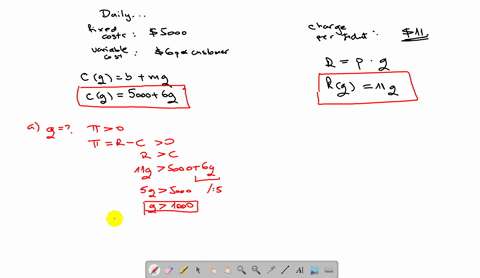 Daily...
fixed costs: $5000
variable cost: $6 per customer
C(g) = b + mg
C(g) = 5000+6g
charge per ticket: $11
R = p · g
R(g) = 11g
a) g=? π>0
π = R-C >0
R > C
11g > 5000+6g
5g > 5000 /:5
g > 1000